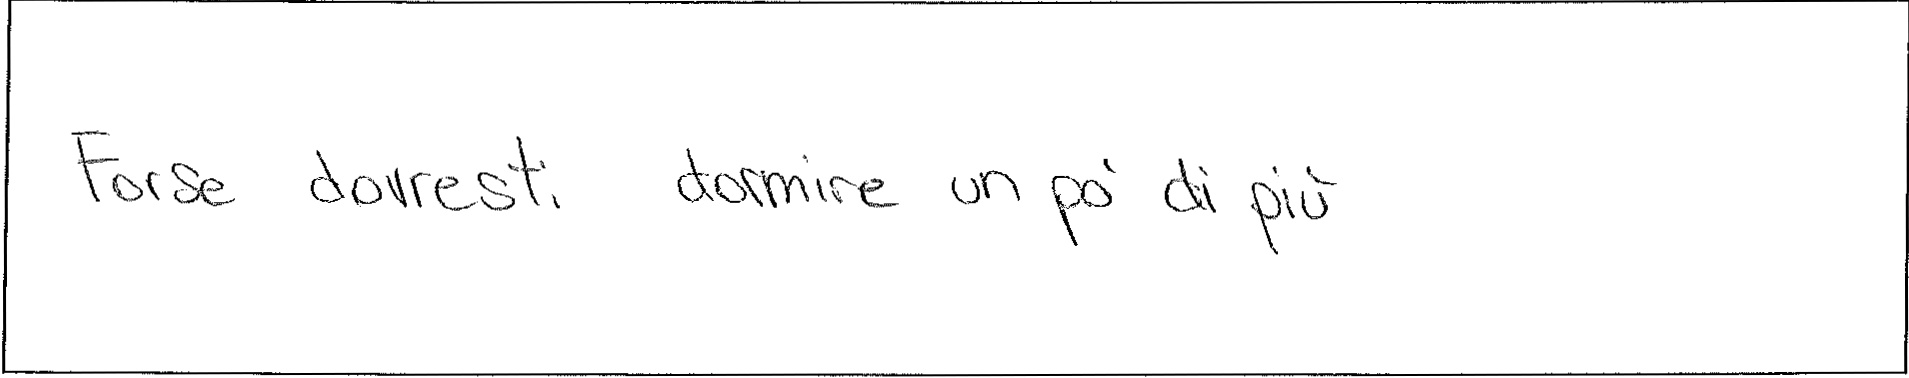 Forse dovresti dormire un po' di più